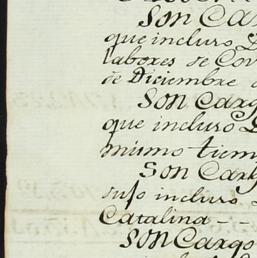 Son Car
que incluso D
labores de Cor
de Diciembre
Son Carg
que incluso
mismo tiem
Son Car
suso incluso
Catalina - -
Son Cargo